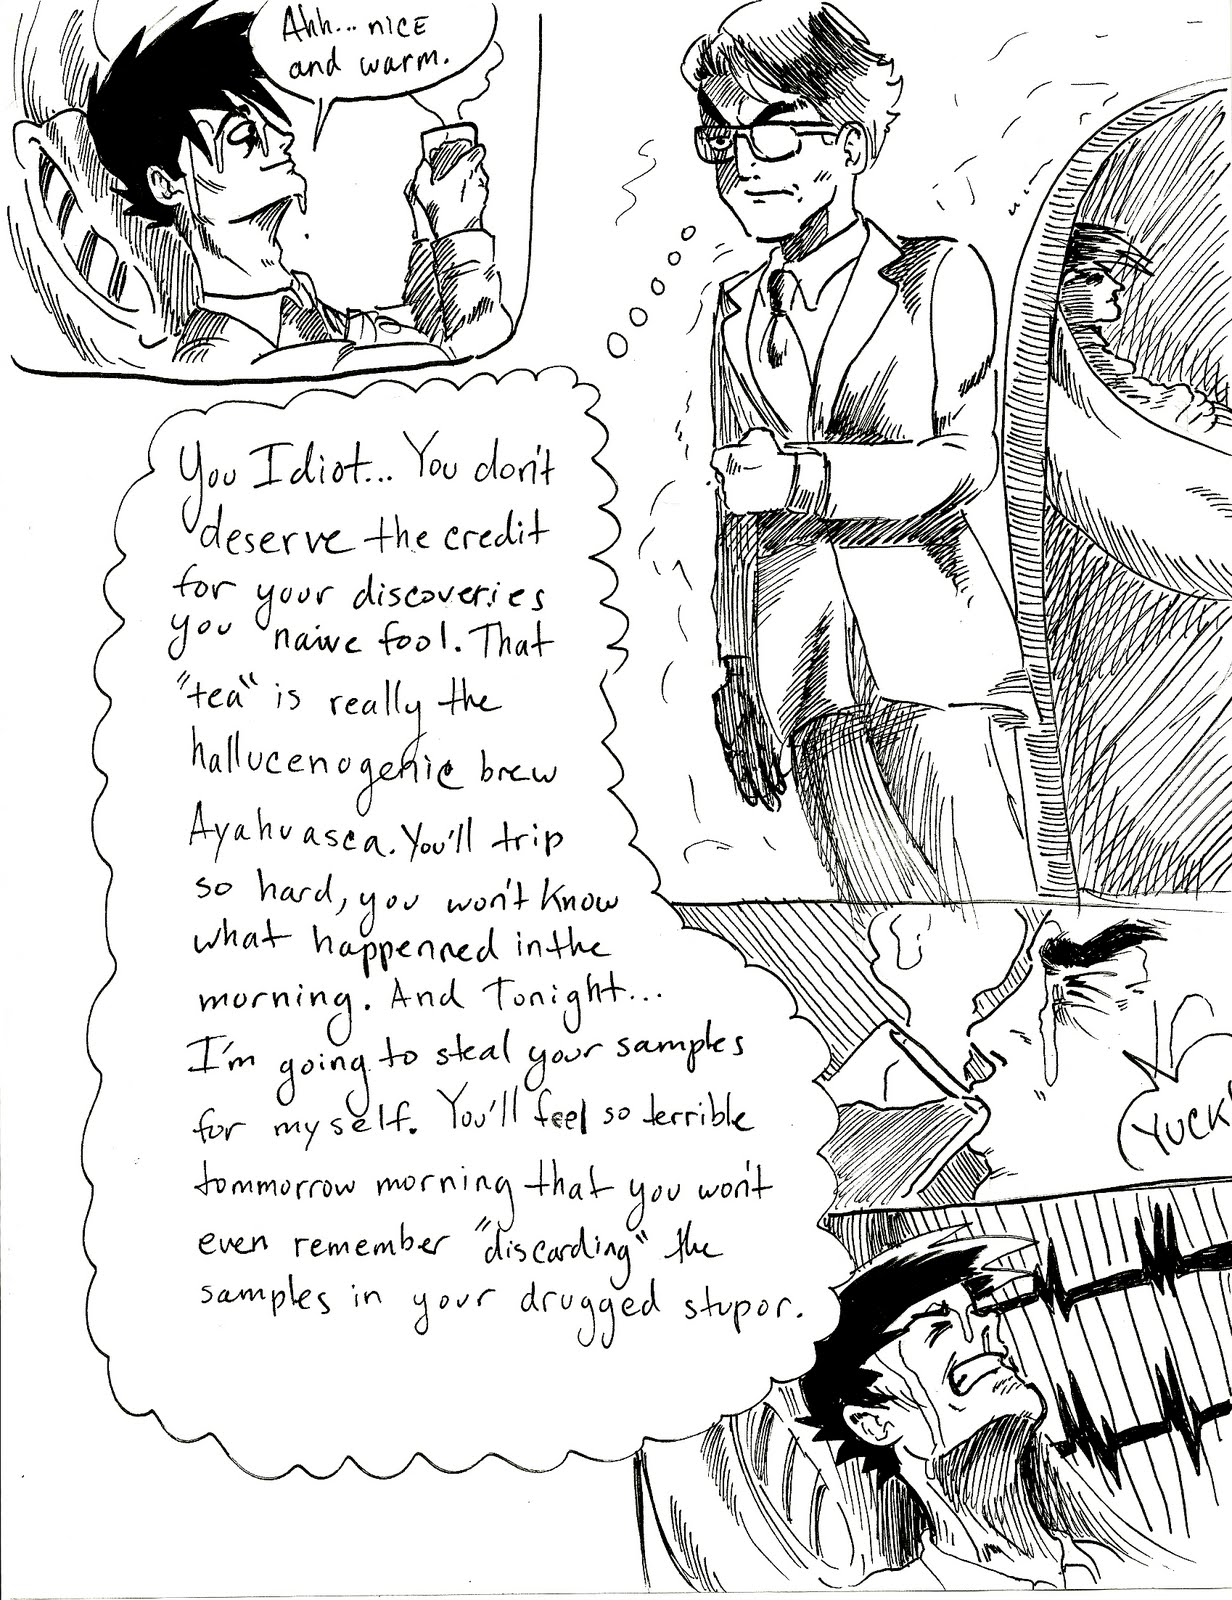 Ahh... nice
and warm.
You Idiot... You don't
deserve the credit
for your discoveries
you naive fool. That
"tea" is really the
hallucenogenic brew
Ayahuasca. You'll trip
so hard, you won't know
what happenned in the
morning. And Tonight...
I'm going to steal your samples
for myself. You'll feel so terrible
tommorrow morning that you won't
even remember "discarding" the
samples in your drugged stupor.
YUCK!